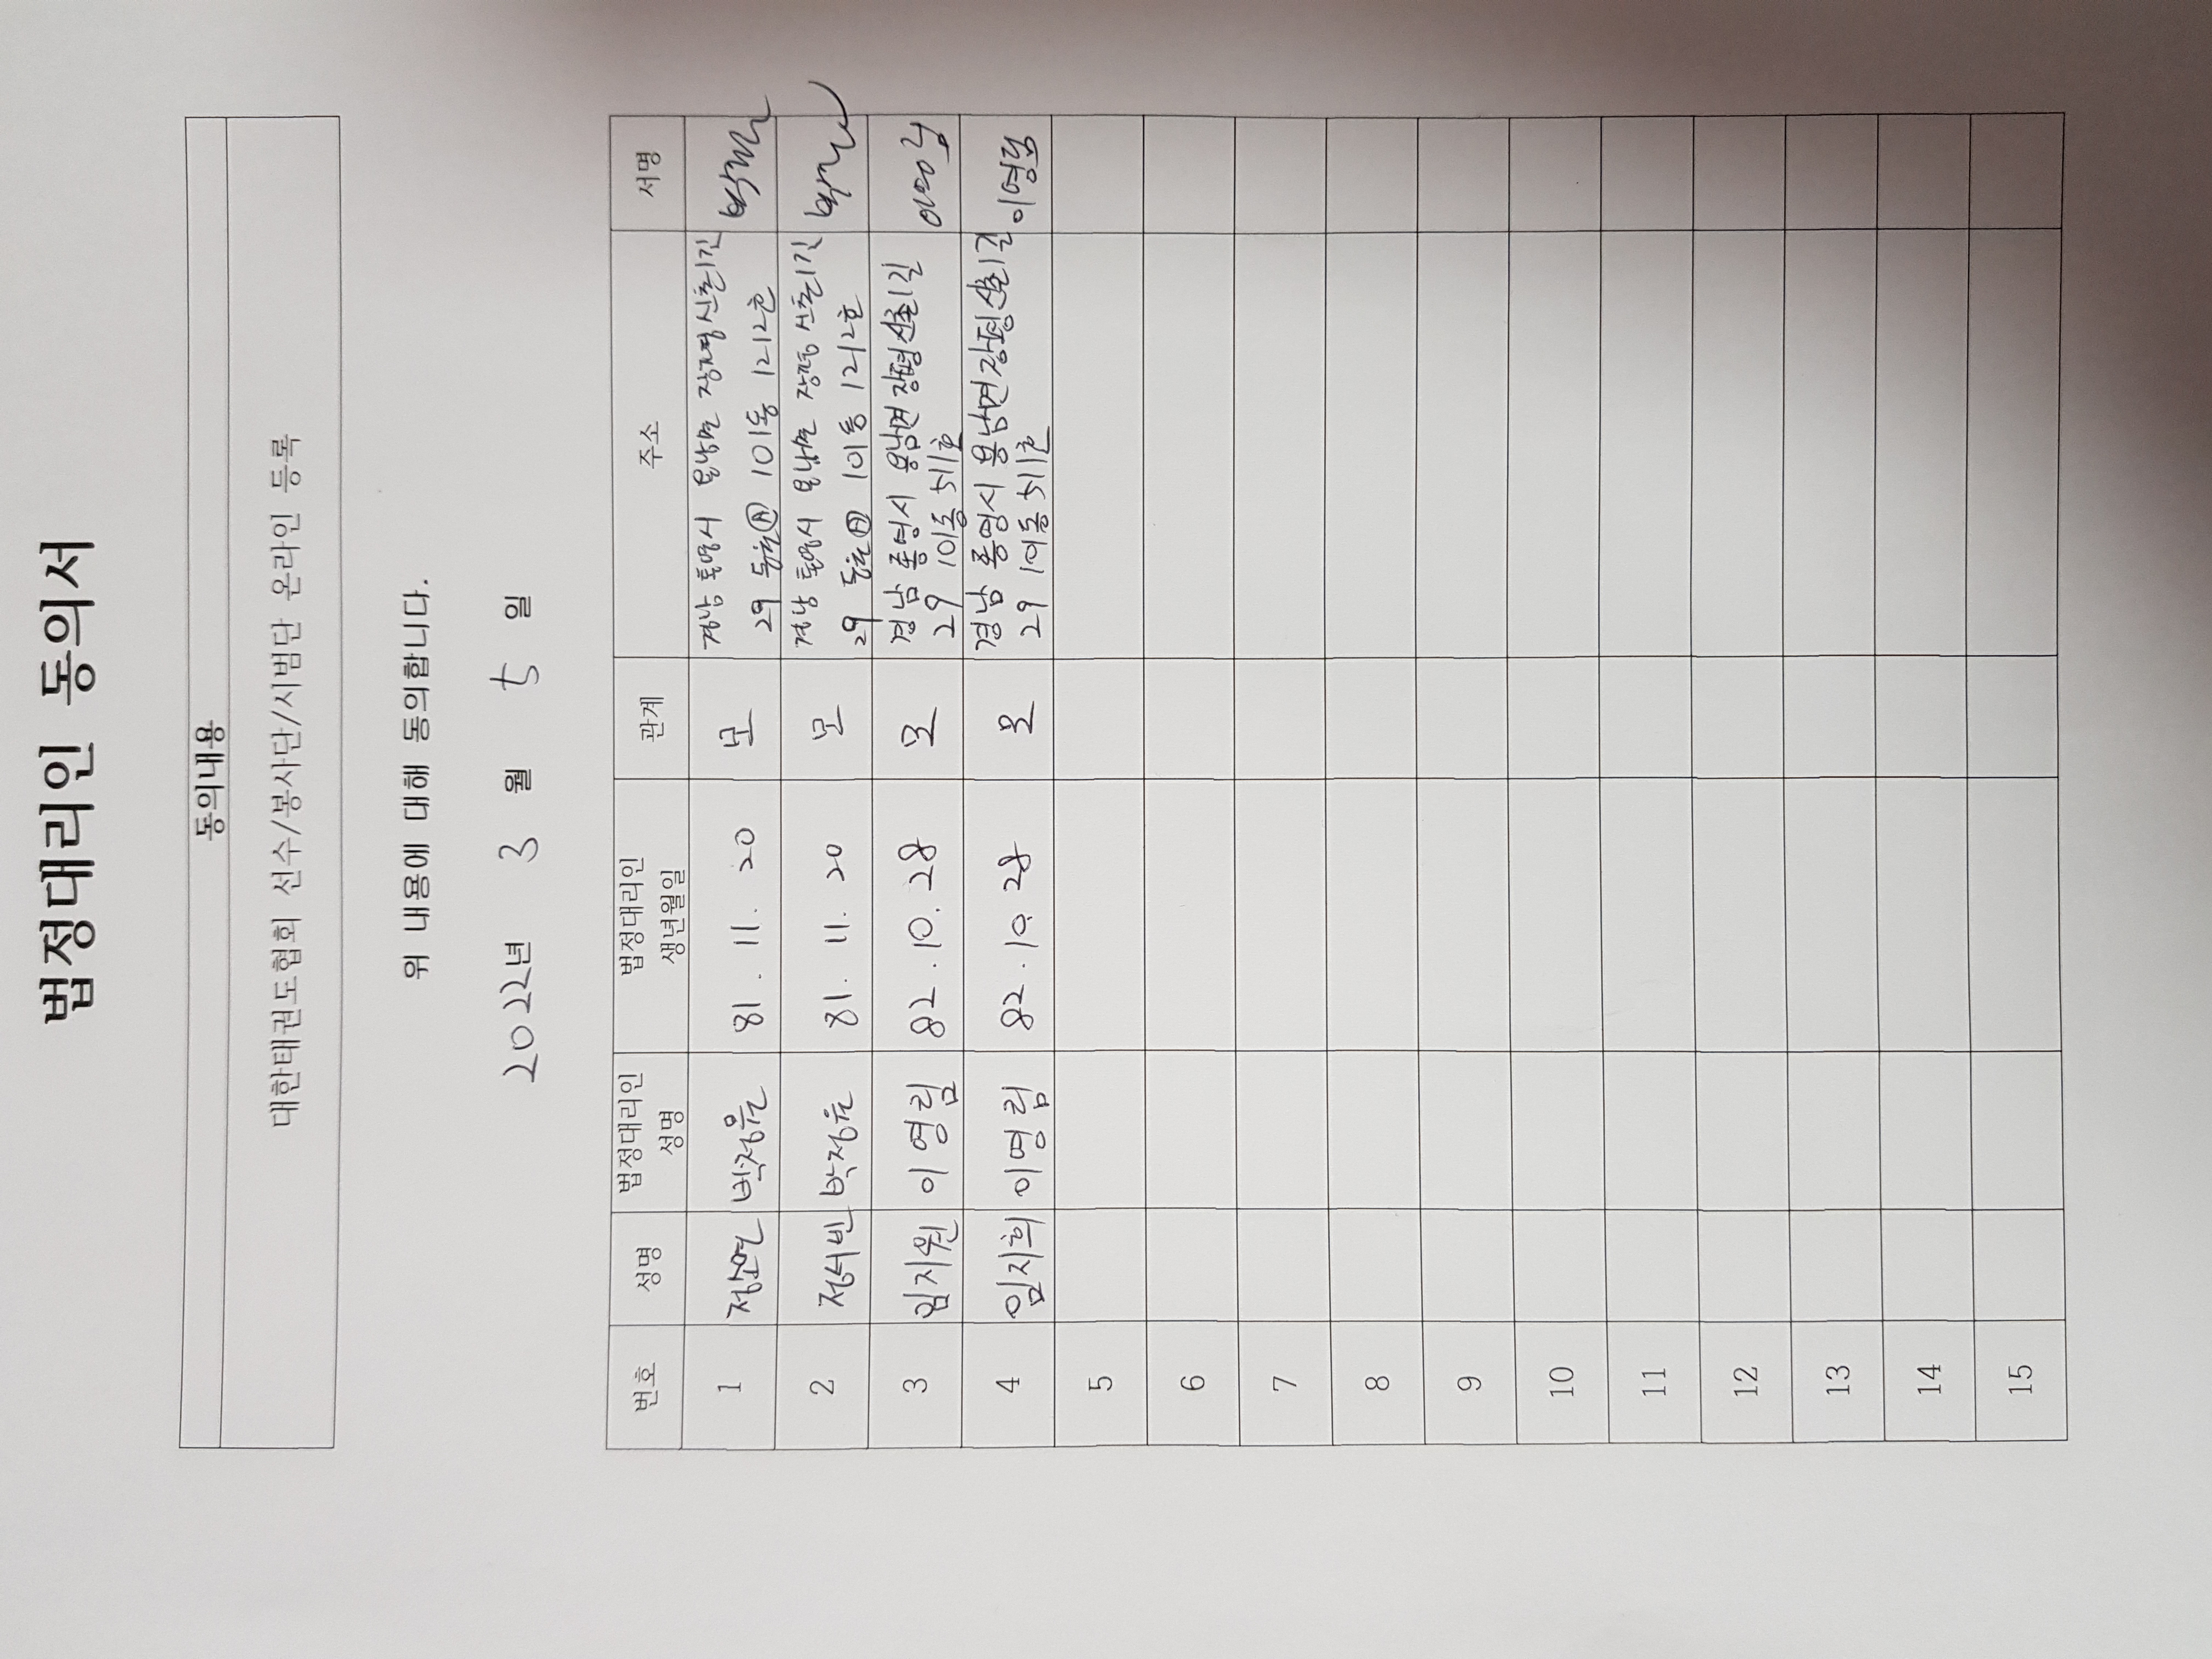 법정대리인 동의서
동의내용
대한태권도협회 선수/봉사단/시범단 온라인 등록
위 내용에 대해 동의합니다.
2022년 3 월 5 일
번호 성명 법정대리인 성명 법정대리인 생년월일 관계 주소 서명
1 박정윤 81. 11. 20 모 경남 통영시 용남면 장평신촌1길
29 101동 1212호
2 정서빈 박정윤 81. 11. 20 모 경남 통영시 용남면 장평신촌1길
29 101동 1212호
3 임지원 이영림 82. 10. 28 모 경남 통영시 용남면 장평신촌1길
29 101동 511호
4 임지희 이영림 82. 10. 28 모 경남 통영시 용남면 장평신촌1길 이영림
29 101동 511호
5
6
7
8
9
10
11
12
13
14
15